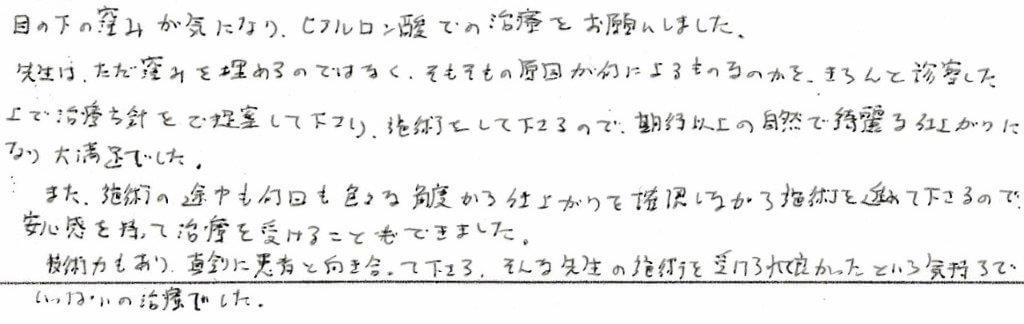 目の下の窪みが気になり、ヒアルロン酸での治療をお願いしました。
先生は、ただ窪みを埋めるのではなく、そもそもの原因が何によるものなのかを、きちんと診察した
上で治療方針をご提案して下さり、施術をして下さるので、期待以上の自然で綺麗な仕上がりに
なり大満足でした。
また、施術の途中も何回も色々な角度から仕上がりを確認しながら施術を進めて下さるので、
安心感を持って治療を受けることもできました。
技術力もあり、真剣に患者と向き合って下さる、そんな先生の施術を受けられて良かったという気持ちで
いっぱいの治療でした。